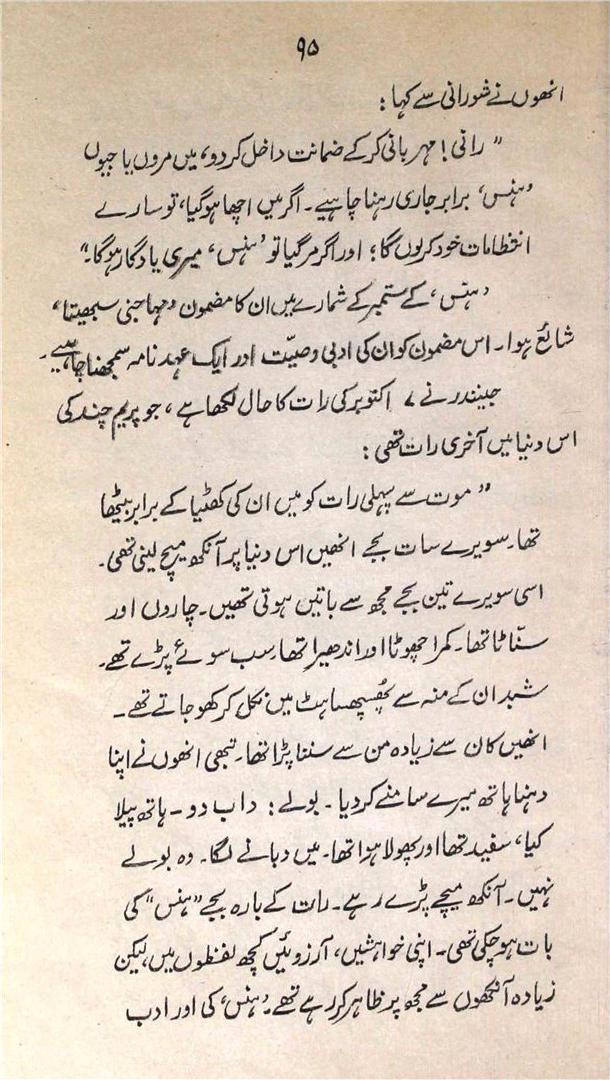 ۹۵
انھوں نے شورانی سے کہا:
" رانی! مہربانی کرکے ضمانت داخل کر دو، میں مروں یا جیوں
'ہنس' برابر جاری رہنا چاہیے۔ اگر میں اچھا ہو گیا، تو سارے
انتظامات خود کر لوں گا؛ اور اگر مر گیا تو 'ہنس' میری یادگار ہوگا۔"
'ہنس' کے ستمبر کے شمارے میں ان کا مضمون 'مہاجنی سبھیتا'
شائع ہوا۔ اس مضمون کو ان کی ادبی وصیّت اور ایک عہد نامہ سمجھنا چاہیے۔
جینندر نے ۷ اکتوبر کی رات کا حال لکھا ہے، جو پریم چند کی
اس دنیا میں آخری رات تھی:
" موت سے پہلی رات کو میں ان کی کھٹیا کے برابر بیٹھا
تھا۔ سویرے سات بجے انھیں اس دنیا پر آنکھ میچ لینی تھی۔
اسی سویرے تین بجے مجھ سے باتیں ہوتی تھیں۔ چاروں اور
سنّاٹا تھا۔ کمرا چھوٹا اور اندھیرا تھا۔ سب سوئے پڑے تھے۔
شبد ان کے منہ سے پھسپھساہٹ میں نکل کر کھو جاتے تھے۔
انھیں کان سے زیادہ من سے سننا پڑا تھا۔ تبھی انھوں نے اپنا
دہنا ہاتھ میرے سامنے کر دیا۔ بولے: داب دو۔ ہاتھ پیلا
کیا، سفید تھا اور پھولا ہوا تھا۔ میں دبانے لگا۔ وہ بولے
نہیں۔ آنکھ میچے پڑے رہے۔ رات کے بارہ بجے "ہنس" کی
بات ہو چکی تھی۔ اپنی خواہشیں، آرزوئیں کچھ لفظوں میں، لیکن
زیادہ آنکھوں سے مجھ پر ظاہر کر رہے تھے۔ 'ہنس' کی اور ادب